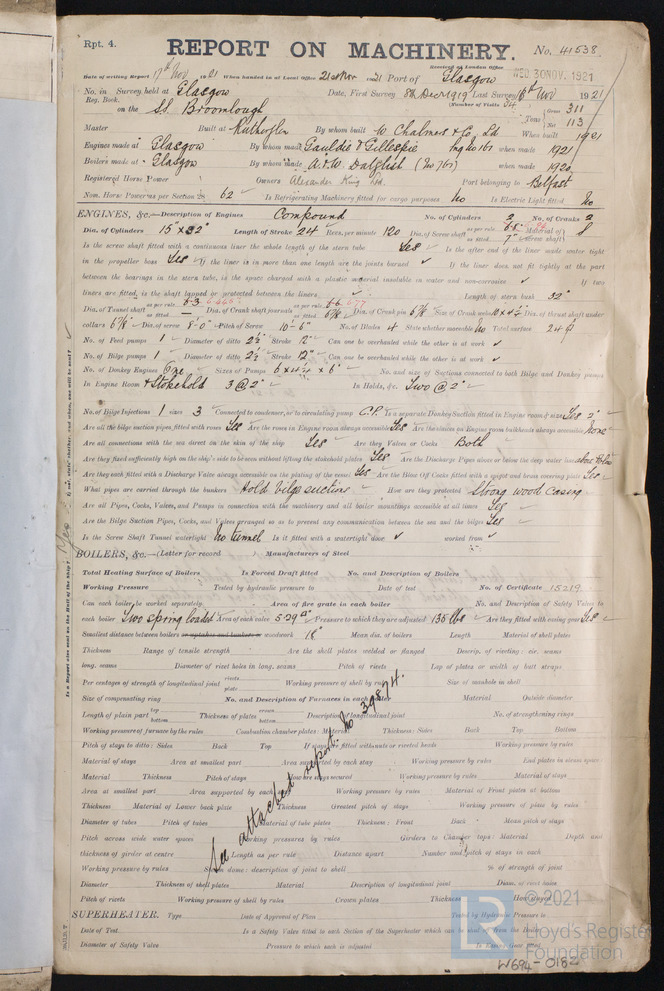 Rpt. 4. REPORT ON MACHINERY. No. 41538
Received at London Office WED 30 NOV. 1921
Date of writing Report 17th Nov 1921 When handed in at Local Office 21st Nov 1921 Port of Glasgow
No. in Reg. Book. Survey held at Glasgow Date, First Survey 8th Dec 1919 Last Survey 16th Nov 1921
on the S.S. Broomlough (Number of Visits 34) Tons Gross 311 Net 113
Master Built at Rutherglen By whom built W. Chalmers & Co. Ld When built 1921
Engines made at Glasgow By whom made Gauldie & Gillespie Eng No 161 when made 1921
Boilers made at Glasgow By whom made A. & W. Dalglish (No 760) when made 1920
Registered Horse Power Owners Alexander King Ltd. Port belonging to Belfast
Nom. Horse Power as per Section 28 62 Is Refrigerating Machinery fitted for cargo purposes No Is Electric Light fitted No
ENGINES, &c.—Description of Engines Compound No. of Cylinders 2 No. of Cranks 2
Dia. of Cylinders 15" x 32" Length of Stroke 24 Revs. per minute 120 Dia. of Screw shaft as per rule as fitted 7" Material of screw shaft
Is the screw shaft fitted with a continuous liner the whole length of the stern tube Yes Is the after end of the liner made water tight
in the propeller boss Yes If the liner is in more than one length are the joints burned ✓ If the liner does not fit tightly at the part
between the bearings in the stern tube, is the space charged with a plastic material insoluble in water and non-corrosive ✓ If two
liners are fitted, is the shaft lapped or protected between the liners ✓ Length of stern bush 32"
Dia. of Tunnel shaft as per rule 6.3 as fitted — Dia. of Crank shaft journals as per rule 6.6 as fitted 6⅞ Dia. of Crank pin 6⅞ Size of Crank webs Dia. of thrust shaft under
collars 6⅞ Dia. of screw 8'-0" Pitch of Screw 10'-6" No. of Blades 4 State whether moveable No Total surface 24 ft
No. of Feed pumps 1 Diameter of ditto 2½" Stroke 12" Can one be overhauled while the other is at work ✓
No. of Bilge pumps 1 Diameter of ditto 2½" Stroke 12" Can one be overhauled while the other is at work ✓
No. of Donkey Engines One Sizes of Pumps No. and size of Suctions connected to both Bilge and Donkey pumps
In Engine Room & Stokehold 3 @ 2" In Holds, &c. Two @ 2"
No. of Bilge Injections 1 sizes 3 Connected to condenser, or to circulating pump C.P. Is a separate Donkey Suction fitted in Engine room & size Yes 2"
Are all the bilge suction pipes fitted with roses Yes Are the roses in Engine room always accessible Yes Are the sluices on Engine room bulkheads always accessible None
Are all connections with the sea direct on the skin of the ship Yes Are they Valves or Cocks Both
Are they fixed sufficiently high on the ship's side to be seen without lifting the stokehold plates Yes Are the Discharge Pipes above or below the deep water line above & below
Are they each fitted with a Discharge Valve always accessible on the plating of the vessel Yes Are the Blow Off Cocks fitted with a spigot and brass covering plate Yes
What pipes are carried through the bunkers Hold bilge suctions How are they protected Strong wood casing
Are all Pipes, Cocks, Valves, and Pumps in connection with the machinery and all boiler mountings accessible at all times Yes
Are the Bilge Suction Pipes, Cocks, and Valves arranged so as to prevent any communication between the sea and the bilges Yes
Is the Screw Shaft Tunnel watertight No tunnel Is it fitted with a watertight door ✓ worked from ✓
BOILERS, &c.—(Letter for record Manufacturers of Steel
Total Heating Surface of Boilers Is Forced Draft fitted No. and Description of Boilers
Working Pressure Tested by hydraulic pressure to Date of test No. of Certificate 15219
Can each boiler be worked separately Area of fire grate in each boiler No. and Description of Safety Valves to
each boiler Two spring loaded Area of each valve 5.29 Pressure to which they are adjusted 135 lbs Are they fitted with easing gear Yes
Smallest distance between boilers or uptakes and bunkers or woodwork 18" Mean dia. of boilers Length Material of shell plates
Thickness Range of tensile strength Are the shell plates welded or flanged Descrip. of riveting: cir. seams
long. seams Diameter of rivet holes in long. seams Pitch of rivets Lap of plates or width of butt straps
Per centages of strength of longitudinal joint rivets plate Working pressure of shell by rules Size of manhole in shell
Size of compensating ring No. and Description of Furnaces in each boiler Material Outside diameter
Length of plain part top bottom Thickness of plates crown bottom Description of longitudinal joint No. of strengthening rings
Working pressure of furnace by the rules Combustion chamber plates: Material Thickness: Sides Back Top Bottom
Pitch of stays to ditto: Sides Back Top If stays are fitted with nuts or riveted heads Working pressure by rules
Material of stays Area at smallest part Area supported by each stay Working pressure by rules End plates in steam space
Material Thickness Pitch of stays How are stays secured Working pressure by rules Material of stays
Area at smallest part Area supported by each Working pressure by rules Material of Front plates at bottom
Thickness Material of Lower back plate Thickness Greatest pitch of stays Working pressure of plate by rules
Diameter of tubes Pitch of tubes Material of tube plates Thickness: Front Back Mean pitch of stays
Pitch across wide water spaces Working pressures by rules Girders to Chamber tops: Material Depth and
thickness of girder at centre Length as per rule Distance apart Number and pitch of stays in each
Working pressure by rules Steam dome: description of joint to shell % of strength of joint
Diameter Thickness of shell plates Material Description of longitudinal joint Diam. of rivet holes
Pitch of rivets Working pressure of shell by rules Crown plates Thickness How stayed
See attached report No 39874.
SUPERHEATER. Type Date of Approval of Plan Tested by Hydraulic Pressure to
Date of Test Is a Safety Valve fitted to each Section of the Superheater which can be shut off from the Boiler
Diameter of Safety Valve Pressure to which each is adjusted Is Easing Gear fitted
Is a Report also sent on the Hull of the Ship? Yes
© 2021
LR
Lloyd's Register
Foundation
W694-0182